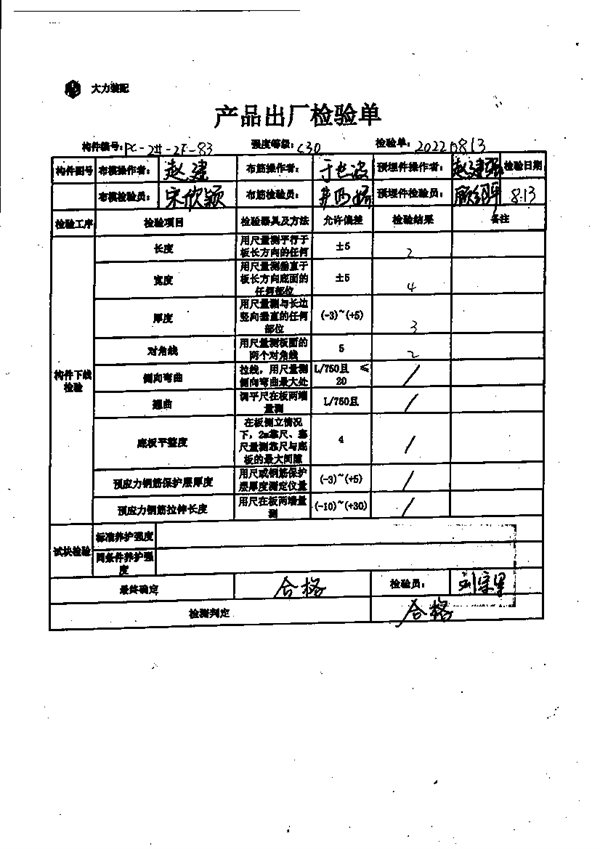 大力装配
产品出厂检验单
构件编号：PC-2#-2F-83 强度等级：C30 检验单：20220813
构件图号 布模操作者： 赵建 布筋操作者： 预埋件操作者： 赵建强 检验日期
布模检验员： 宋欣颖 布筋检验员： 预埋件检验员： 8.13
检验工序 检验项目 检验器具及方法 允许偏差 检验结果 备注
构件下线检验
长度 用尺量测平行于板长方向的任何 ±5 2
宽度 用尺量测垂直于板长方向底面的任何部位 ±5 4
厚度 用尺量测与长边竖向垂直的任何部位 (-3)~(+5) 3
对角线 用尺量测板面的两个对角线 5 2
侧向弯曲 拉线，用尺量测侧向弯曲最大处 L/750且 ≤20 /
翘曲 调平尺在板两端量测 L/750且 /
底板平整度 在板侧立情况下，2m靠尺、塞尺量测靠尺与底板的最大间隙 4 /
预应力钢筋保护层厚度 用尺或钢筋保护层厚度测定仪量 (-3)~(+5) /
预应力钢筋拉伸长度 用尺在板两端量测 (-10)~(+30) /
试块检验 标准养护强度
同条件养护强度
最终确定 合格 检验员：
检测判定 合格